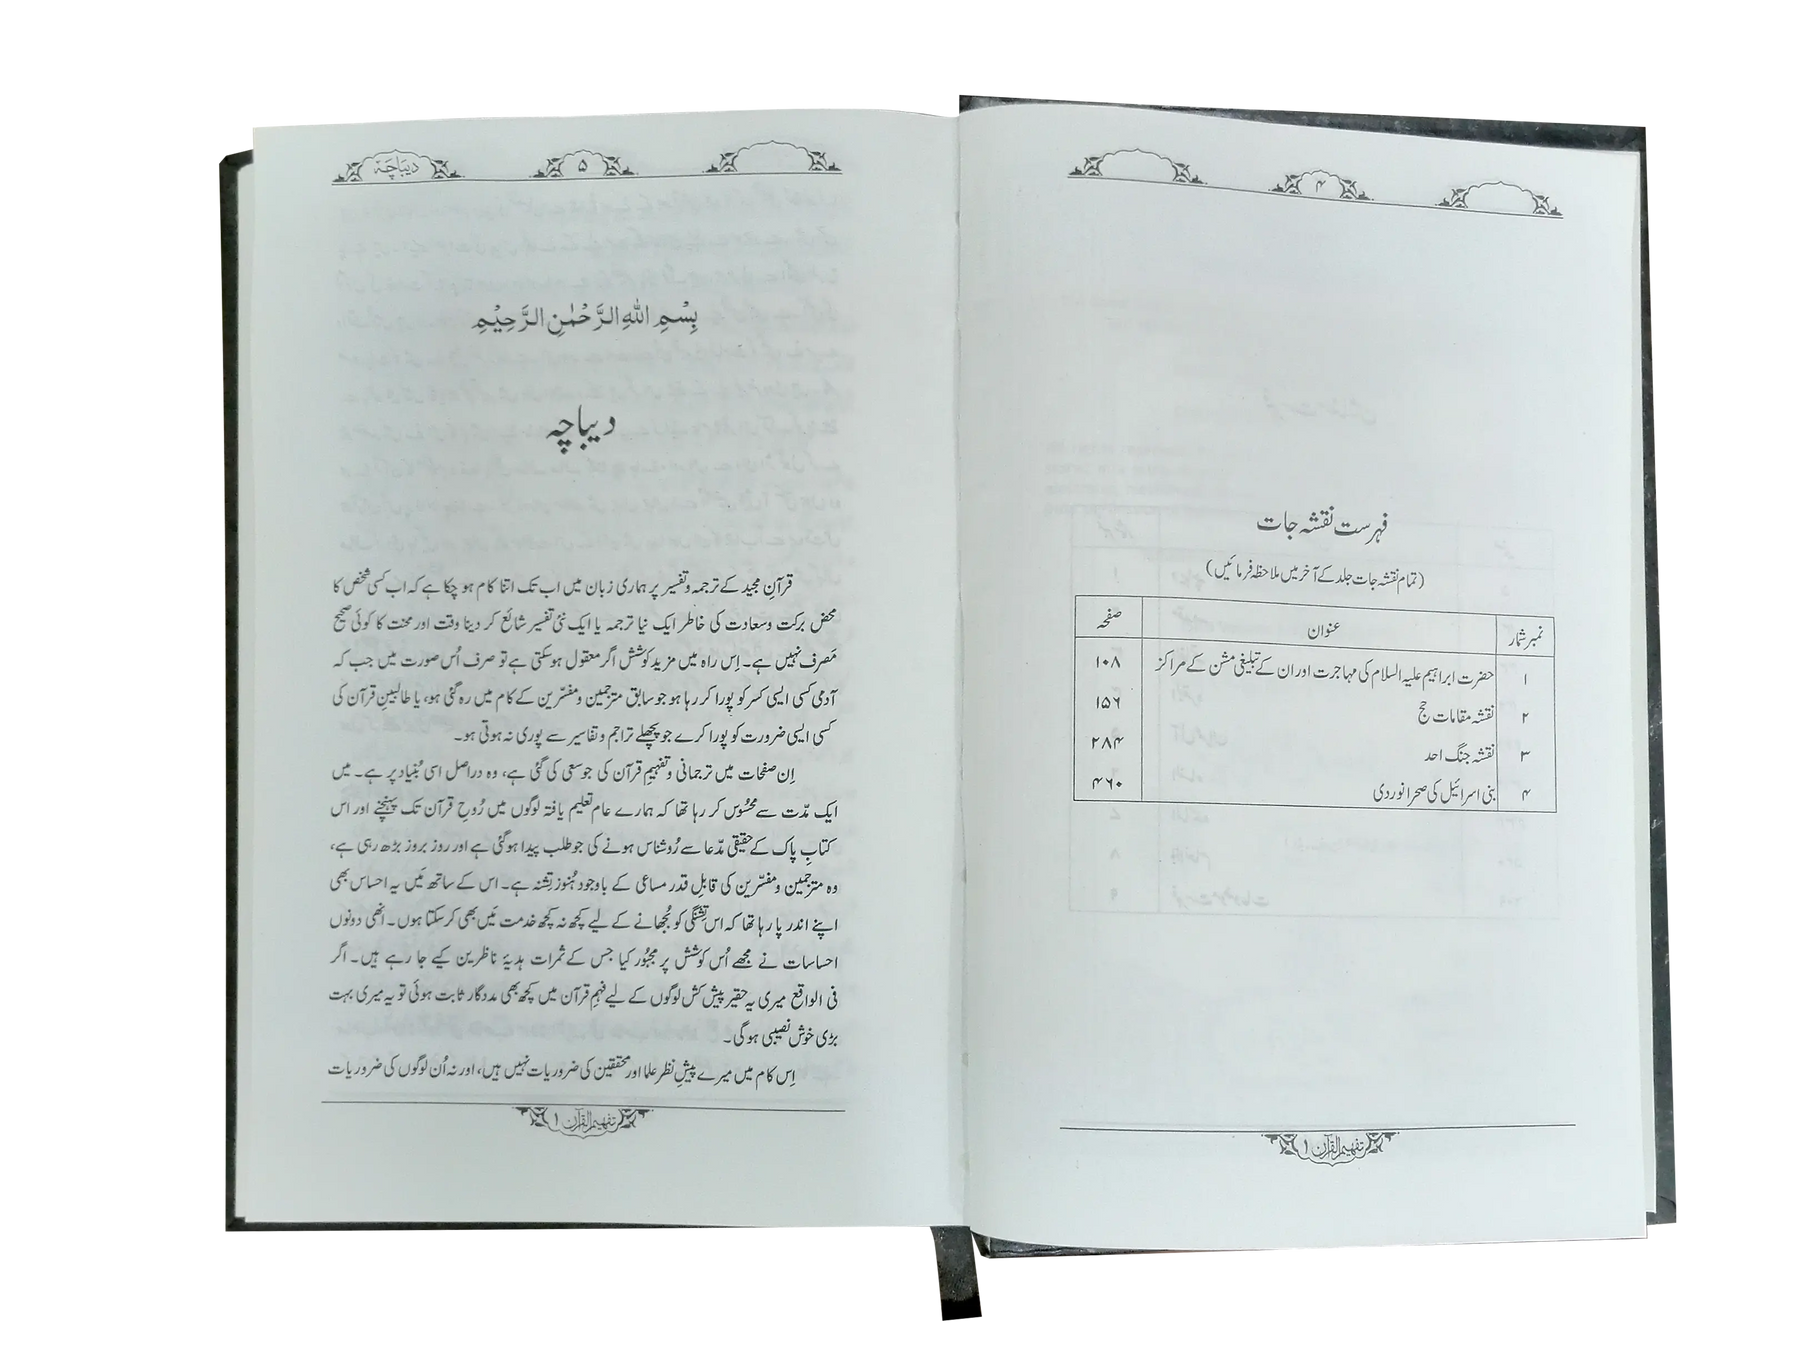 ۴
فہرست نقشہ جات
(تمام نقشہ جات جلد کے آخر میں ملاحظہ فرمائیں)
نمبر شمار عنوان صفحہ
۱ حضرت ابراہیم علیہ السلام کی مہاجرت اور ان کے تبلیغی مشن کے مراکز ۱۰۸
۲ نقشہ مقامات حج ۱۵۶
۳ نقشہ جنگ احد ۲۸۴
۴ بنی اسرائیل کی صحرا نوردی ۴۶۰
تفہیم القرآن ۱
۵ دیباچہ
بِسْمِ اللّٰهِ الرَّحْمٰنِ الرَّحِيْمِ
دیباچہ
قرآنِ مجید کے ترجمہ و تفسیر پر ہماری زبان میں اب تک اتنا کام ہو چکا ہے کہ اب کسی شخص کا
محض برکت و سعادت کی خاطر ایک نیا ترجمہ یا ایک نئی تفسیر شائع کر دینا وقت اور محنت کا کوئی صحیح
مَصرف نہیں ہے۔ اِس راہ میں مزید کوشش اگر معقول ہو سکتی ہے تو صرف اُس صورت میں جب کہ
آدمی کسی ایسی کسر کو پورا کر رہا ہو جو سابق مترجمین و مفسّرین کے کام میں رہ گئی ہو، یا طالبینِ قرآن کی
کسی ایسی ضرورت کو پورا کرے جو پچھلے تراجم و تفاسیر سے پوری نہ ہوتی ہو۔
اِن صفحات میں ترجمانی و تفہیمِ قرآن کی جو سعی کی گئی ہے، وہ دراصل اسی بُنیاد پر ہے۔ میں
ایک مدّت سے محسُوس کر رہا تھا کہ ہمارے عام تعلیم یافتہ لوگوں میں رُوحِ قرآن تک پہنچنے اور اس
کتابِ پاک کے حقیقی مدّعا سے رُوشناس ہونے کی جو طلب پیدا ہو گئی ہے اور روز بروز بڑھ رہی ہے،
وہ مترجمین و مفسّرین کی قابلِ قدر مساعی کے باوجود ہُنوز تِشنہ ہے۔ اس کے ساتھ مَیں یہ احساس بھی
اپنے اندر پا رہا تھا کہ اس تِشنگی کو بُجھانے کے لیے کچھ نہ کچھ خدمت مَیں بھی کر سکتا ہوں۔ انھی دونوں
احساسات نے مجھے اُس کوشش پر مجبُور کیا جس کے ثمرات ہدیۂ ناظرین کیے جا رہے ہیں۔ اگر
فی الواقع میری یہ حقیر پیش کش لوگوں کے لیے فہمِ قرآن میں کچھ بھی مددگار ثابت ہوئی تو یہ میری بہت
بڑی خوش نصیبی ہوگی۔
اِس کام میں میرے پیشِ نظر علما اور محققین کی ضروریات نہیں ہیں، اور نہ اُن لوگوں کی ضروریات
تفہیم القرآن ۱